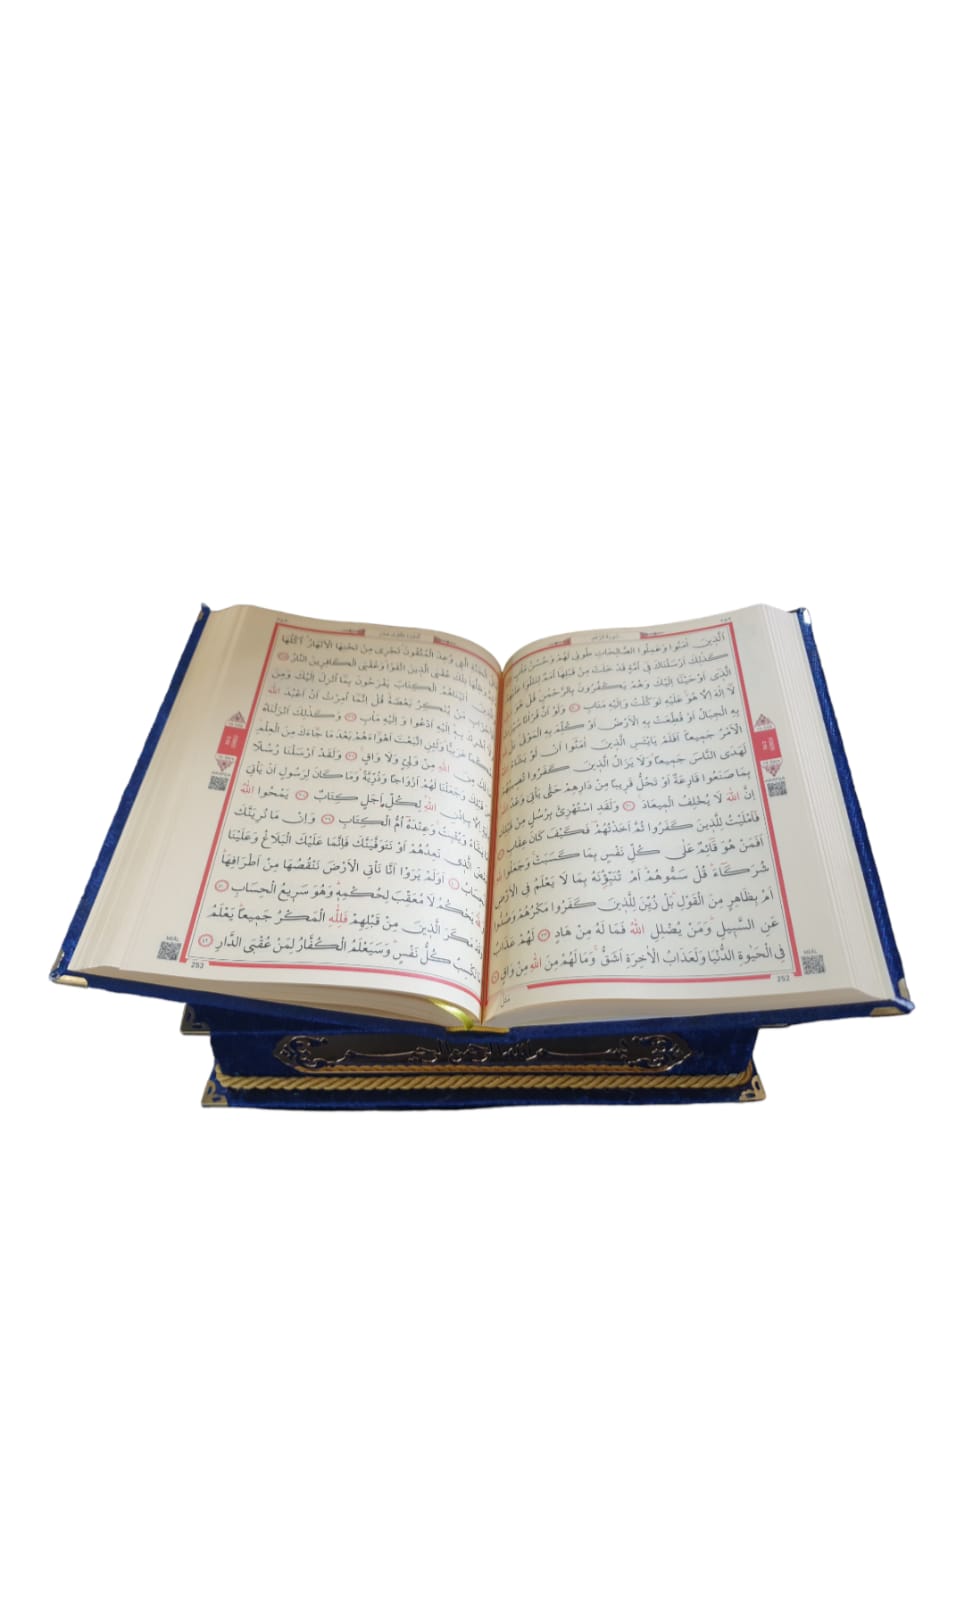 سُورَةُ الرَّعْدِ
اَلَّذٖينَ اٰمَنُوا وَعَمِلُوا الصَّالِحَاتِ طُوبٰى لَهُمْ وَحُسْنُ
كَذٰلِكَ اَرْسَلْنَاكَ فٖٓى اُمَّةٍ قَدْ خَلَتْ مِنْ قَبْلِهَٓا اُمَمٌ لِتَتْلُوَا
الَّذٖٓى اَوْحَيْنَٓا اِلَيْكَ وَهُمْ يَكْفُرُونَ بِالرَّحْمٰنِ قُلْ هُوَ
لَٓا اِلٰهَ اِلَّا هُوَ عَلَيْهِ تَوَكَّلْتُ وَاِلَيْهِ مَتَابِ ٣٠ وَلَوْ اَنَّ قُرْاٰنًا
بِهِ الْجِبَالُ اَوْ قُطِّعَتْ بِهِ الْاَرْضُ اَوْ كُلِّمَ بِهِ الْمَوْتٰى بَلْ
الْاَمْرُ جَمٖيعًا اَفَلَمْ يَايْـَٔسِ الَّذٖينَ اٰمَنُٓوا اَنْ لَوْ يَشَٓاءُ
لَهَدَى النَّاسَ جَمٖيعًا وَلَا يَزَالُ الَّذٖينَ كَفَرُوا تُصٖيبُهُمْ
بِمَا صَنَعُوا قَارِعَةٌ اَوْ تَحُلُّ قَرٖيبًا مِنْ دَارِهِمْ حَتّٰى يَاْتِىَ وَعْدُ اللّٰهِ
اِنَّ اللّٰهَ لَا يُخْلِفُ الْمٖيعَادَ ٣١ وَلَقَدِ اسْتُهْزِئَ بِرُسُلٍ مِنْ قَبْلِكَ
فَاَمْلَيْتُ لِلَّذٖينَ كَفَرُوا ثُمَّ اَخَذْتُهُمْ فَكَيْفَ كَانَ عِقَابِ ٣٢
اَفَمَنْ هُوَ قَٓائِمٌ عَلٰى كُلِّ نَفْسٍ بِمَا كَسَبَتْ وَجَعَلُوا لِلّٰهِ
شُرَكَٓاءَ قُلْ سَمُّوهُمْ اَمْ تُنَبِّؤُ۫نَهُ بِمَا لَا يَعْلَمُ فِى الْاَرْضِ
اَمْ بِظَاهِرٍ مِنَ الْقَوْلِ بَلْ زُيِّنَ لِلَّذٖينَ كَفَرُوا مَكْرُهُمْ وَصُدُّوا
عَنِ السَّبٖيلِ وَمَنْ يُضْلِلِ اللّٰهُ فَمَا لَهُ مِنْ هَادٍ ٣٣ لَهُمْ عَذَابٌ
فِى الْحَيٰوةِ الدُّنْيَا وَلَعَذَابُ الْاٰخِرَةِ اَشَقُّ وَمَا لَهُمْ مِنَ اللّٰهِ مِنْ وَاقٍ ٣٤
مَثَلُ
252
الْجَنَّةِ الَّتٖى وُعِدَ الْمُتَّقُونَ تَجْرٖى مِنْ تَحْتِهَا الْاَنْهَارُ اُكُلُهَا
وَظِلُّهَا تِلْكَ عُقْبَى الَّذٖينَ اتَّقَوْا وَعُقْبَى الْكَافِرٖينَ النَّارُ ٣٥
اٰتَيْنَاهُمُ الْكِتَابَ يَفْرَحُونَ بِمَٓا اُنْزِلَ اِلَيْكَ وَمِنَ
مَنْ يُنْكِرُ بَعْضَهُ قُلْ اِنَّمَٓا اُمِرْتُ اَنْ اَعْبُدَ اللّٰهَ
اُشْرِكَ بِهٖ اِلَيْهِ اَدْعُوا وَاِلَيْهِ مَاٰبِ ٣٦ وَكَذٰلِكَ اَنْزَلْنَاهُ
حُكْمًا عَرَبِيًّا وَلَئِنِ اتَّبَعْتَ اَهْوَٓاءَهُمْ بَعْدَ مَا جَٓاءَكَ مِنَ الْعِلْمِ
مِنَ اللّٰهِ مِنْ وَلِىٍّ وَلَا وَاقٍ ٣٧ وَلَقَدْ اَرْسَلْنَا رُسُلًا
قَبْلِكَ وَجَعَلْنَا لَهُمْ اَزْوَاجًا وَذُرِّيَّةً وَمَا كَانَ لِرَسُولٍ اَنْ يَاْتِىَ
اِلَّا بِاِذْنِ اللّٰهِ لِكُلِّ اَجَلٍ كِتَابٌ ٣٨ يَمْحُوا اللّٰهُ
مَا يَشَٓاءُ وَيُثْبِتُ وَعِنْدَهُٓ اُمُّ الْكِتَابِ ٣٩ وَاِنْ مَا نُرِيَنَّكَ
بَعْضَ الَّذٖى نَعِدُهُمْ اَوْ نَتَوَفَّيَنَّكَ فَاِنَّمَا عَلَيْكَ الْبَلَاغُ وَعَلَيْنَا
الْحِسَابُ ٤٠ اَوَلَمْ يَرَوْا اَنَّا نَاْتِى الْاَرْضَ نَنْقُصُهَا مِنْ اَطْرَافِهَا
يَحْكُمُ لَا مُعَقِّبَ لِحُكْمِهٖ وَهُوَ سَرٖيعُ الْحِسَابِ ٤١
وَقَدْ مَكَرَ الَّذٖينَ مِنْ قَبْلِهِمْ فَلِلّٰهِ الْمَكْرُ جَمٖيعًا يَعْلَمُ
مَا تَكْسِبُ كُلُّ نَفْسٍ وَسَيَعْلَمُ الْكُفَّارُ لِمَنْ عُقْبَى الدَّارِ ٤٢
252
بسم الله الرحمن الرحيم